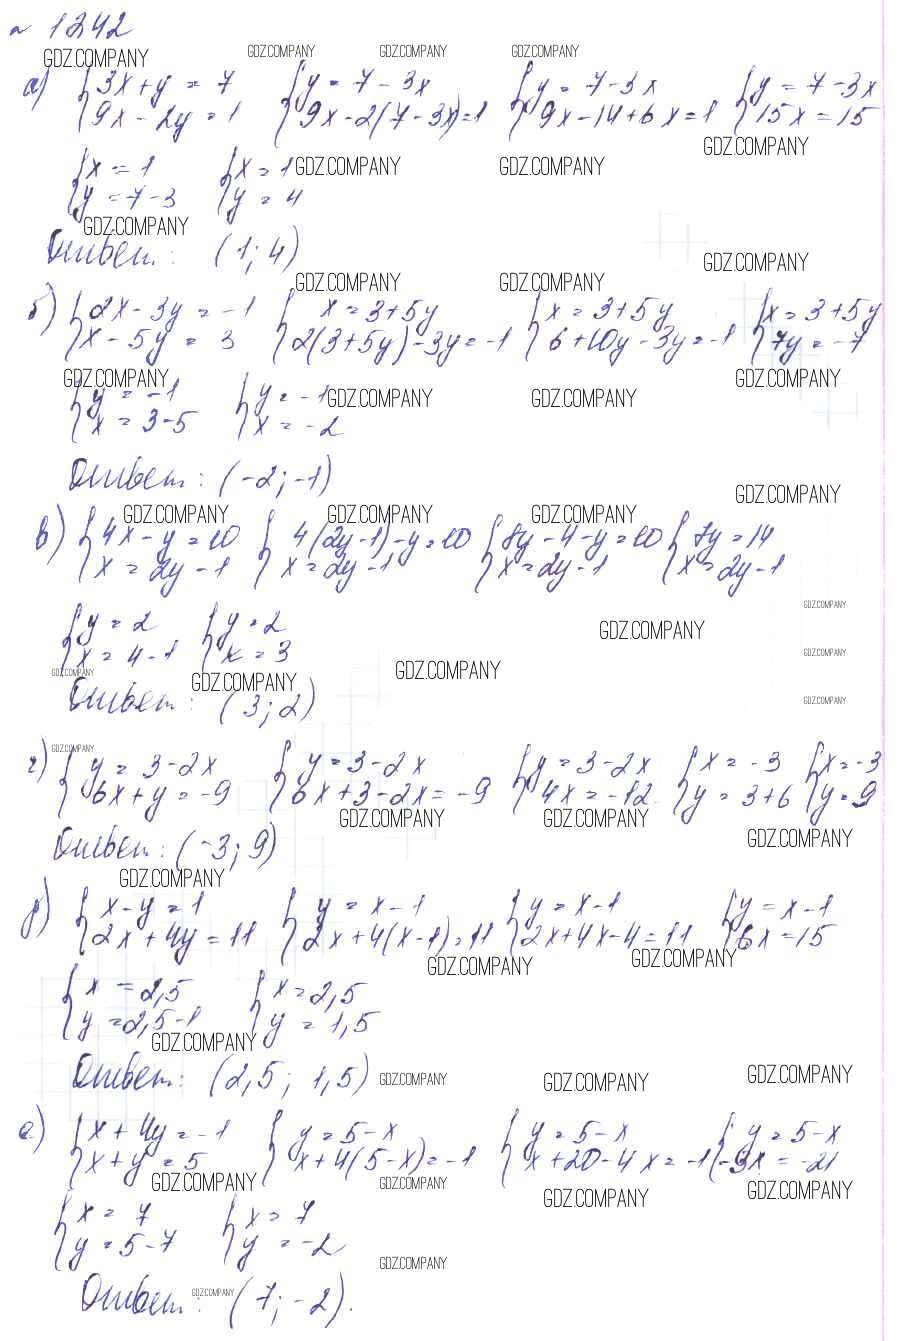 № 1242
GDZ.COMPANY GDZ.COMPANY GDZ.COMPANY GDZ.COMPANY
а) { 3x + y = 7 { y = 7 - 3x { y = 7 - 3x { y = 7 - 3x
9x - 2y = 1 9x - 2(7 - 3x) = 1 9x - 14 + 6x = 1 15x = 15
GDZ.COMPANY
{ x = 1 { x = 1 GDZ.COMPANY GDZ.COMPANY
y = 7 - 3 y = 4
GDZ.COMPANY
Ответ: (1; 4)
GDZ.COMPANY
GDZ.COMPANY GDZ.COMPANY
б) { 2x - 3y = -1 { x = 3 + 5y { x = 3 + 5y { x = 3 + 5y
x - 5y = 3 2(3 + 5y) - 3y = -1 6 + 10y - 3y = -1 7y = -7
GDZ.COMPANY GDZ.COMPANY
{ y = -1 { y = -1 GDZ.COMPANY GDZ.COMPANY
x = 3 - 5 x = -2
Ответ: (-2; -1)
GDZ.COMPANY
GDZ.COMPANY GDZ.COMPANY GDZ.COMPANY
в) { 4x - y = 10 { 4(2y - 1) - y = 10 { 8y - 4 - y = 10 { 7y = 14
x = 2y - 1 x = 2y - 1 x = 2y - 1 x = 2y - 1
GDZ.COMPANY
{ y = 2 { y = 2 GDZ.COMPANY
x = 4 - 1 x = 3 GDZ.COMPANY
GDZ.COMPANY GDZ.COMPANY GDZ.COMPANY
Ответ: (3; 2) GDZ.COMPANY
GDZ.COMPANY
г) { y = 3 - 2x { y = 3 - 2x { y = 3 - 2x { x = -3 { x = -3
6x + y = -9 6x + 3 - 2x = -9 4x = -12 y = 3 + 6 y = 9
GDZ.COMPANY GDZ.COMPANY GDZ.COMPANY
Ответ: (-3; 9)
GDZ.COMPANY
д) { x - y = 1 { y = x - 1 { y = x - 1 { y = x - 1
2x + 4y = 11 2x + 4(x - 1) = 11 2x + 4x - 4 = 11 6x = 15
GDZ.COMPANY GDZ.COMPANY
{ x = 2,5 { x = 2,5
y = 2,5 - 1 y = 1,5
GDZ.COMPANY
Ответ: (2,5; 1,5) GDZ.COMPANY GDZ.COMPANY GDZ.COMPANY
е) { x + 4y = -1 { y = 5 - x { y = 5 - x { y = 5 - x
x + y = 5 x + 4(5 - x) = -1 x + 20 - 4x = -1 -3x = -21
GDZ.COMPANY GDZ.COMPANY GDZ.COMPANY GDZ.COMPANY
{ x = 7 { x = 7
y = 5 - 7 y = -2
GDZ.COMPANY
Ответ: GDZ.COMPANY (7; -2).